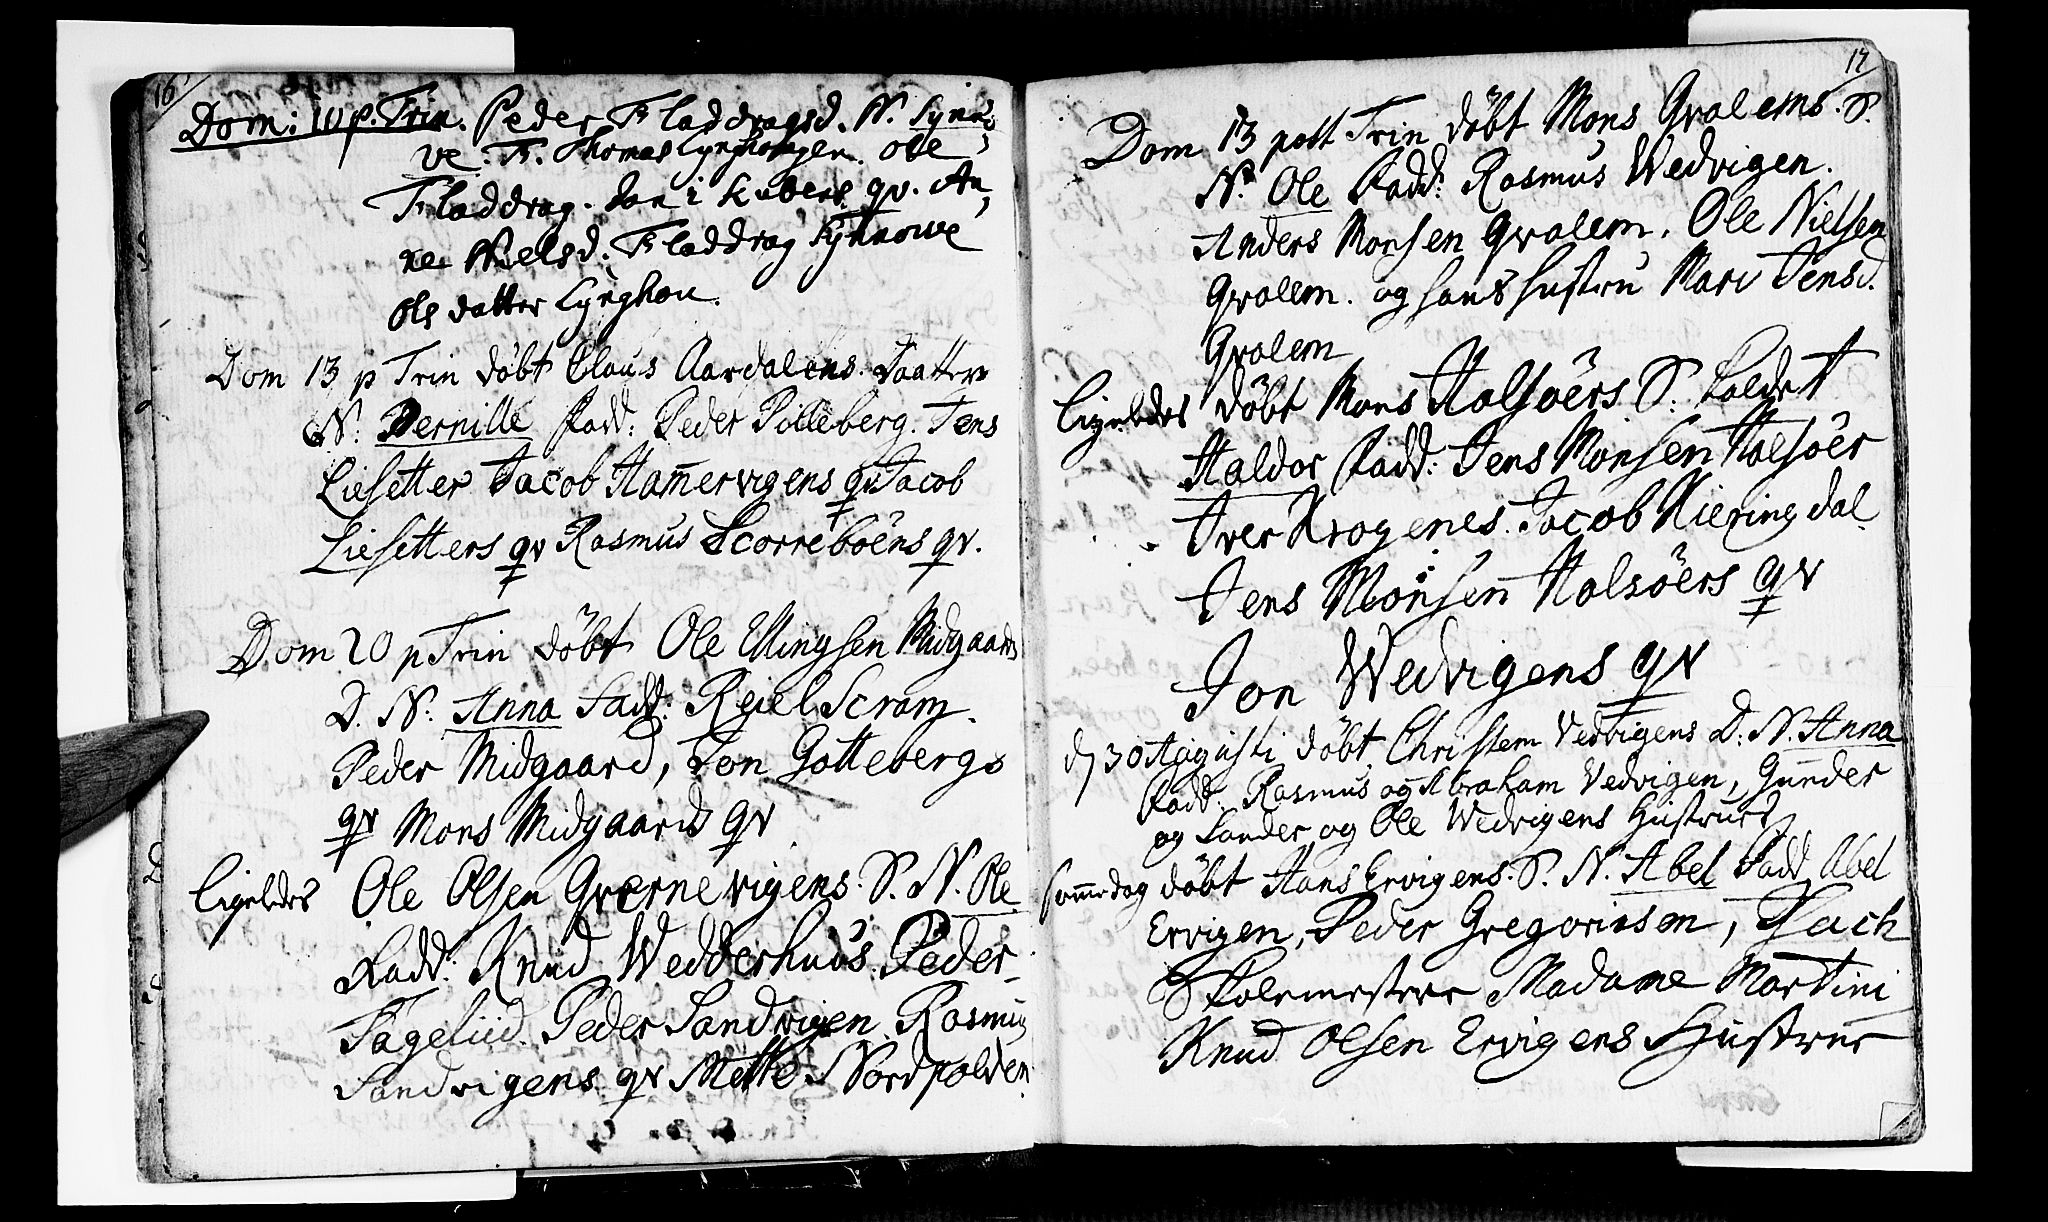 16
Dom: 10 p. Trin. Peder Fladdragsd. N. Synnø,
ve. F. Thomas Lynghougen. Ole
Fladdrag. Jon i Kubens qv. An,
ne Nielsd. Fladdrag Synnowe
Ols datter Lynghou.
Dom 13 p Trin döbt Claus Aardalens Daatter
N: Pernille Fadd: Peder Pilleberg. Jens
Liesetter Jacob Ham̄ervigens qv Jacob
Liesetters qv Rasmus Scorreböens qv.
Dom 20 p Trin döbt Ole Ellingsen Midgaards
D. N: Anna Fadd: Reiel Scram.
Peder Midgaard, Jon Gottebergs
qv Mons Midgaards qv
Ligeledes Ole Olsen Gvernevigens S. N. Ole
Fadd: Knud Wedderhuus Peder
Fageliid Peder Sandvigen Rasmus
Sandvigens qv Mette Nordpolden
17
Dom 13 post Trin döbt Mons Qvalems S.
N. Ole Fadd: Rasmus Wedvigen.
Anders Monsen Qvalem, Ole Nielsen
Qvalem. og hans hustru Mari Jensd.
Qvalem
Ligeledes döbt Mons Halsöers S. kaldet
Haldor Fadd: Jens Monsen Halsöer
Iver Krogenes. Jacob Kieringdal
Jens Monsen Halsöers qv
Jon Wedvigens qv
d 30 Augusti döbt Christem Vedvigens D: N. Anna
Fadd: Rasmus og Abraham Vedvigen, Gunder
og Sander og Ole Wedvigens Hustrues
Sam̄e dag döbt Hans Ervigens S. N. Abel Fadd Abel
Ervigen, Peder Gregoriusen, Zach
Skolemester Madame Martini
Knud Olsen Ervigens Hustrue